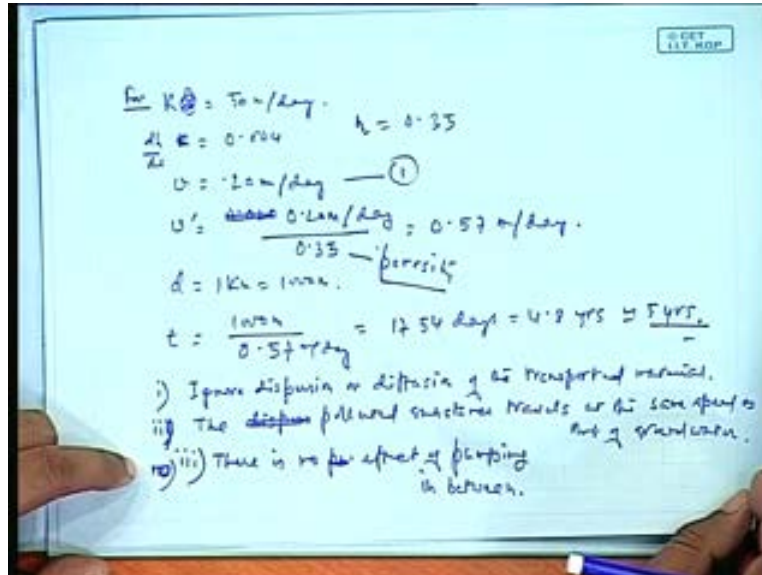 © CET
I.I.T. KGP
For K = 50 m/day.
n = 0.35
dh/dl = 0.004
v = .20 m/day — ①
v' = 0.20m/day / 0.35 = 0.57 m/day.
porosity
d = 1 Km = 1000m.
t = 1000m / 0.57 m/day = 1754 days = 4.8 yrs ≃ 5 yrs.
i) Ignore dispersion or diffusion of the transported material.
ii) The polluted substance travels at the same speed as
that of groundwater.
iii) There is no effect of pumping
in between.